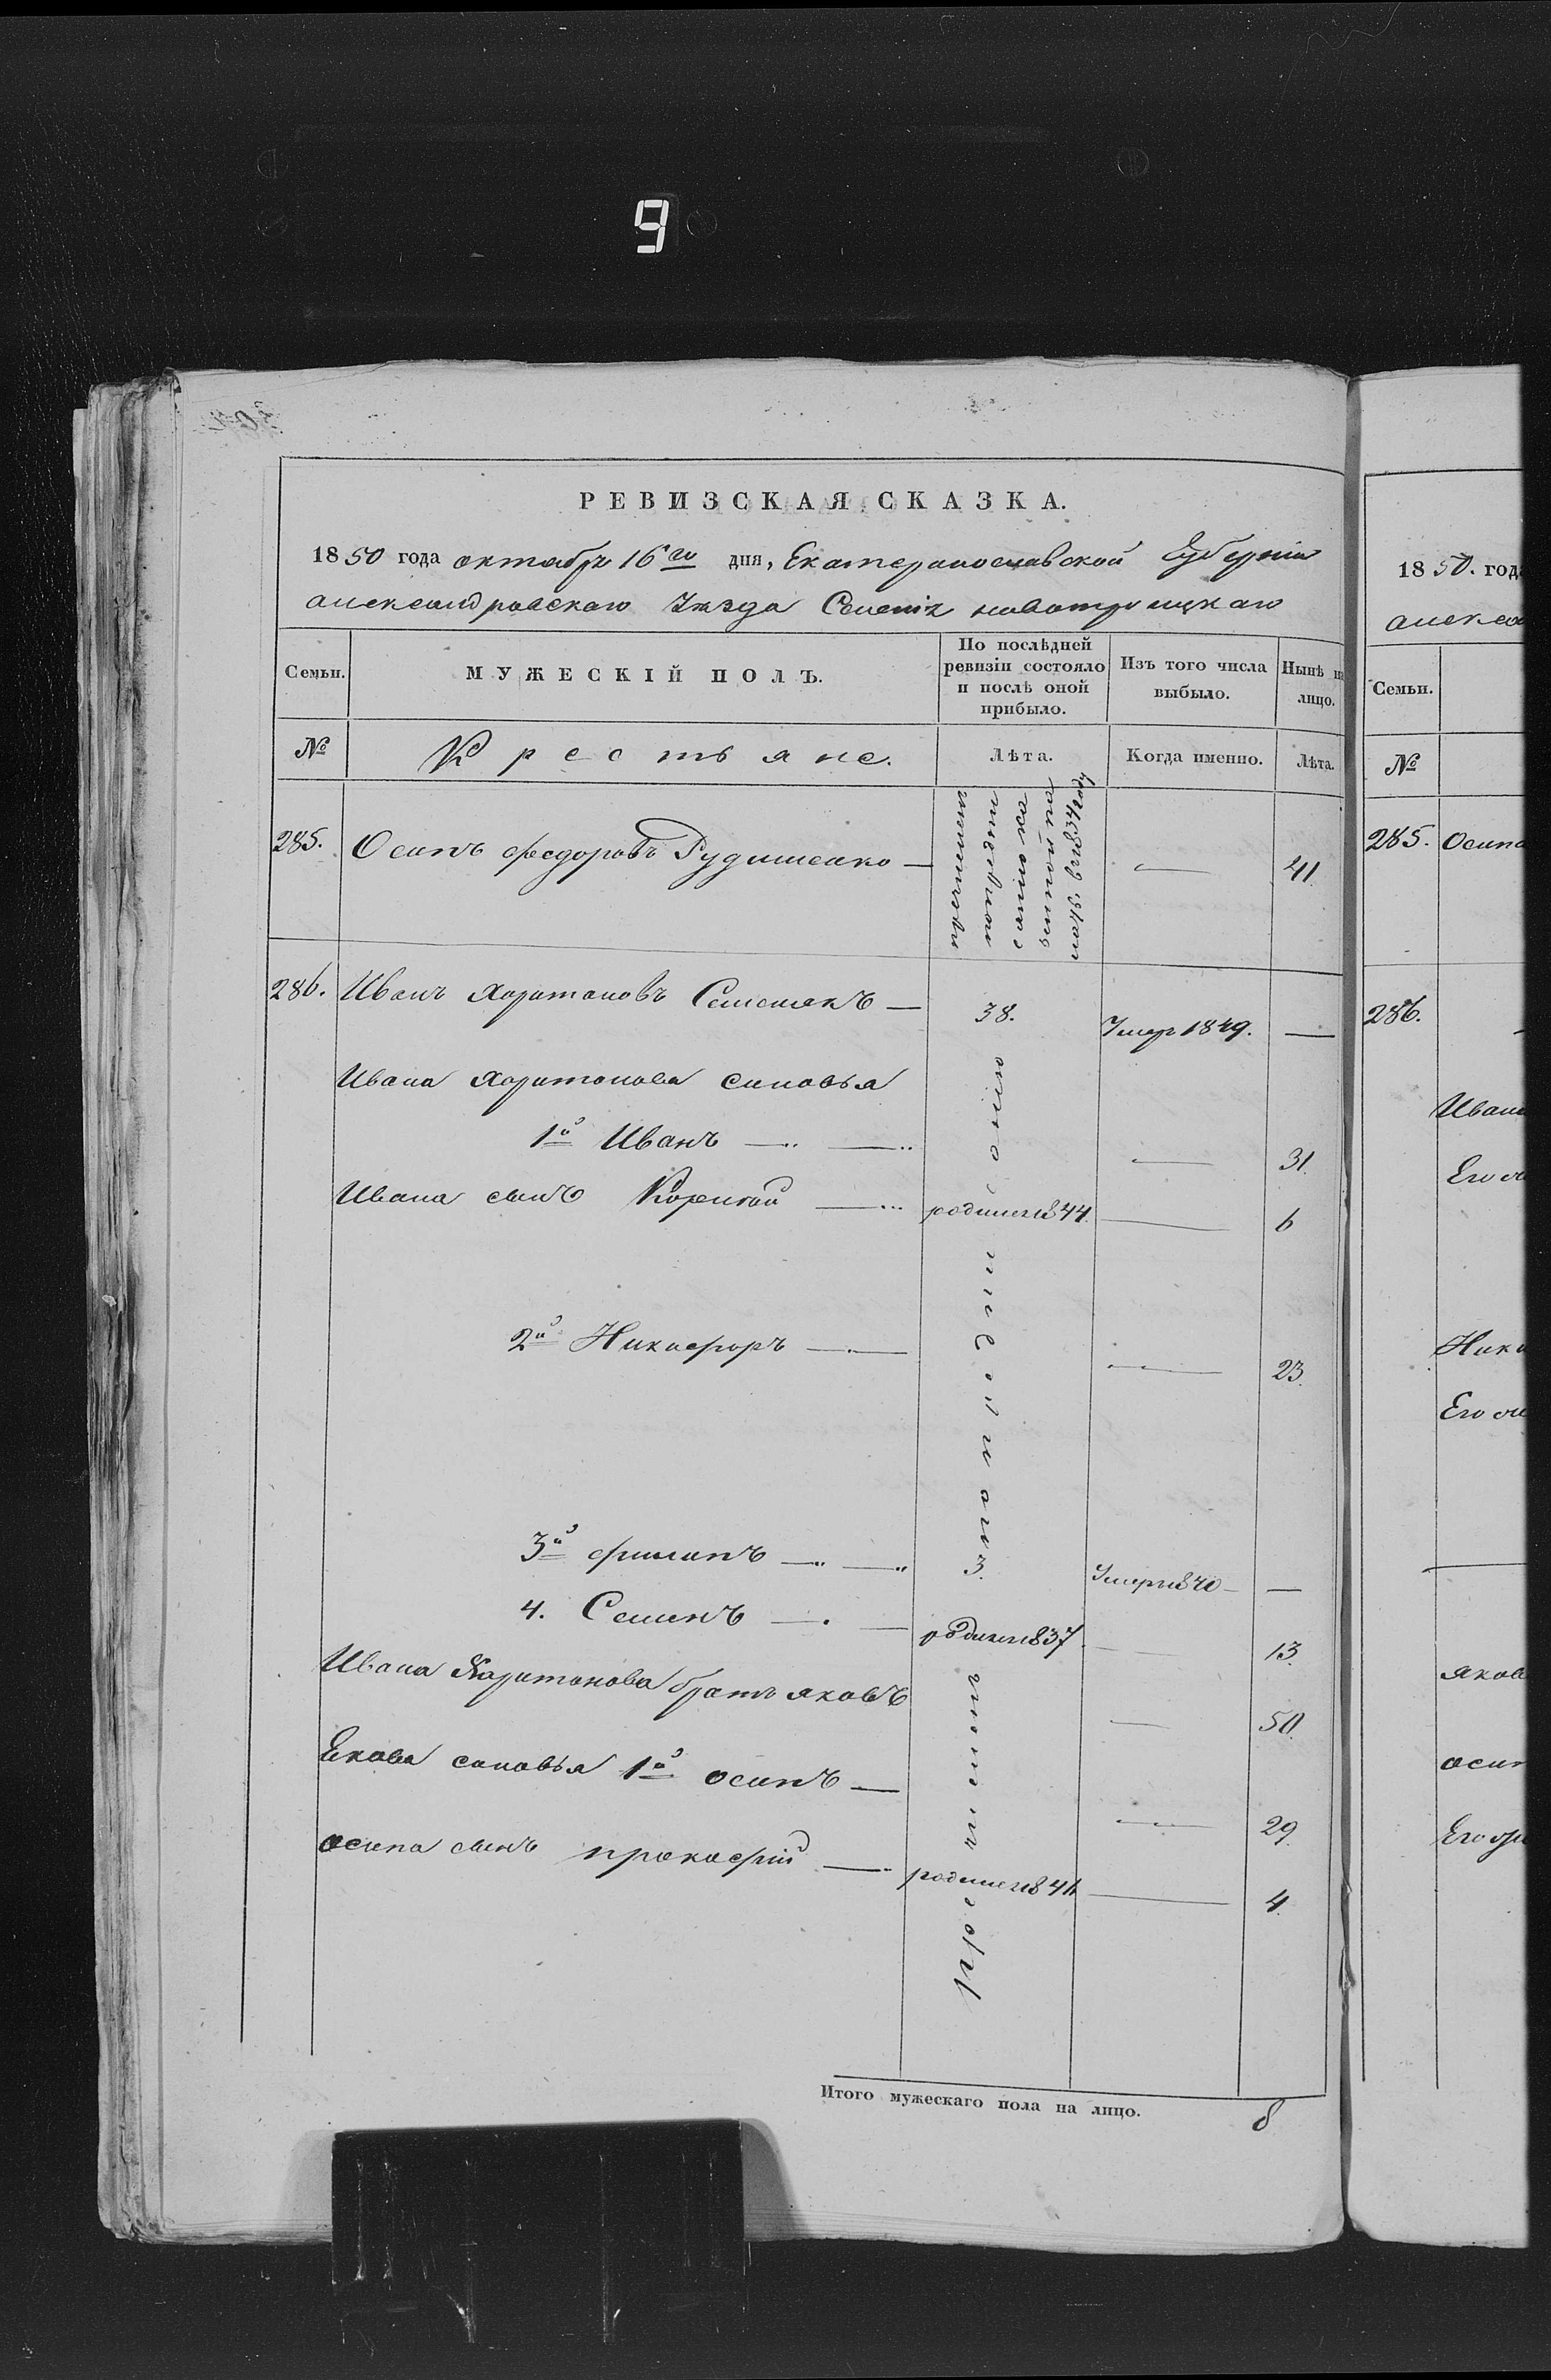 9
РЕВИЗСКАЯ СКАЗКА.
1850 года октября 16го дня, Екатеринославской Губернiи
александровскаго Уѣзда Селенiя новотроицкаго
Семьи.
МУЖЕСКIЙ ПОЛЪ.
По послѣдней ревизiи состояло и послѣ оной прибыло.
Изъ того числа выбыло.
Нынѣ на лицо.
№
Крестьяне.
Лѣта.
Когда именно.
Лѣта.
285. Осипъ федоровъ — 41.
286. Иванъ Харитоновъ — 38. Умеръ 1849. —
Ивана Харитонова синовья
1й Иванъ — — 31.
Ивана синъ — родился 1844. — 6
2й Никифоръ — — 23.
3й филипъ — 3. Умеръ 1840 — —
4. Семенъ — родился 1837. — 13.
Ивана Харитонова братъ яковъ — 50.
Екова синовья 1й осипъ — — 29.
осипа синъ прокофiй — родился 1846 — 4.
причисленъ
Итого мужескаго пола на лицо. 8
1850. года
алекса
Семьи.
№
285. Осипа
286.
Ивана
Его
Ники
Его
яков
осип
Его